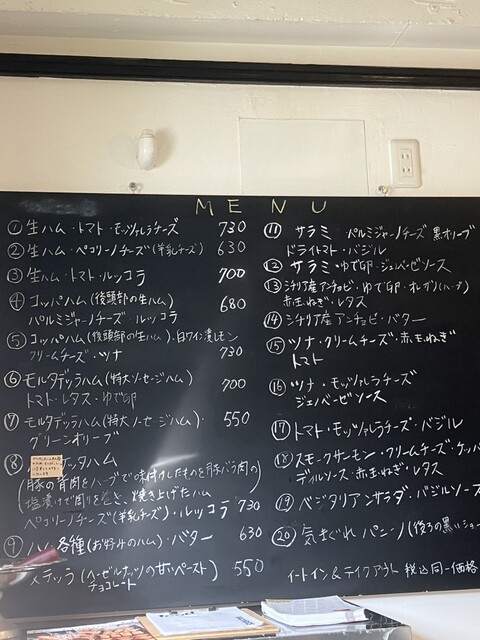 MENU
①生ハム・トマト・モッツァレラチーズ 730
②生ハム・ペコリーノチーズ(羊乳チーズ) 630
③生ハム・トマト・ルッコラ 700
④コッパハム(後頭部の生ハム)
パルミジャーノチーズ・ルッコラ 680
⑤コッパハム(後頭部の生ハム)・白ワイン漬レモン
クリームチーズ・ツナ 730
⑥モルタデッラハム(特大ソーセージハム)
トマト・レタス・ゆで卵 700
⑦モルタデッラハム(特大ソーセージハム)・
グリーンオリーブ 550
⑧ッタハム
豚の肩肉をハーブで味付けしたものを豚バラ肉の
塩漬けで周りを巻き、焼き上げたハム
ペコリーノチーズ(羊乳チーズ)・ルッコラ 730
⑨ハム各種(お好みのハム)・バター 630
メテッラ(ヘーゼルナッツの甘いペースト)
チョコレート 550
⑪サラミ・パルミジャーノチーズ 黒オリーブ
ドライトマト・バジル
⑫サラミ・ゆで卵・ジェノベーゼソース
⑬シチリア産アンチョビ・ゆで卵・オレガノ(ハーブ)
赤玉ねぎ・レタス
⑭シチリア産アンチョビ・バター
⑮ツナ・クリームチーズ・赤玉ねぎ
トマト
⑯ツナ・モッツァレラチーズ
ジェノベーゼソース
⑰トマト・モッツァレラチーズ・バジル
⑱スモークサーモン・クリームチーズ・ケッパ
ディルソース・赤玉ねぎ・レタス
⑲ベジタリアンサラダ・バジルソース
⑳気まぐれパニーノ(後ろの黒いショー
イートイン&テイクアウト 税込同一価格